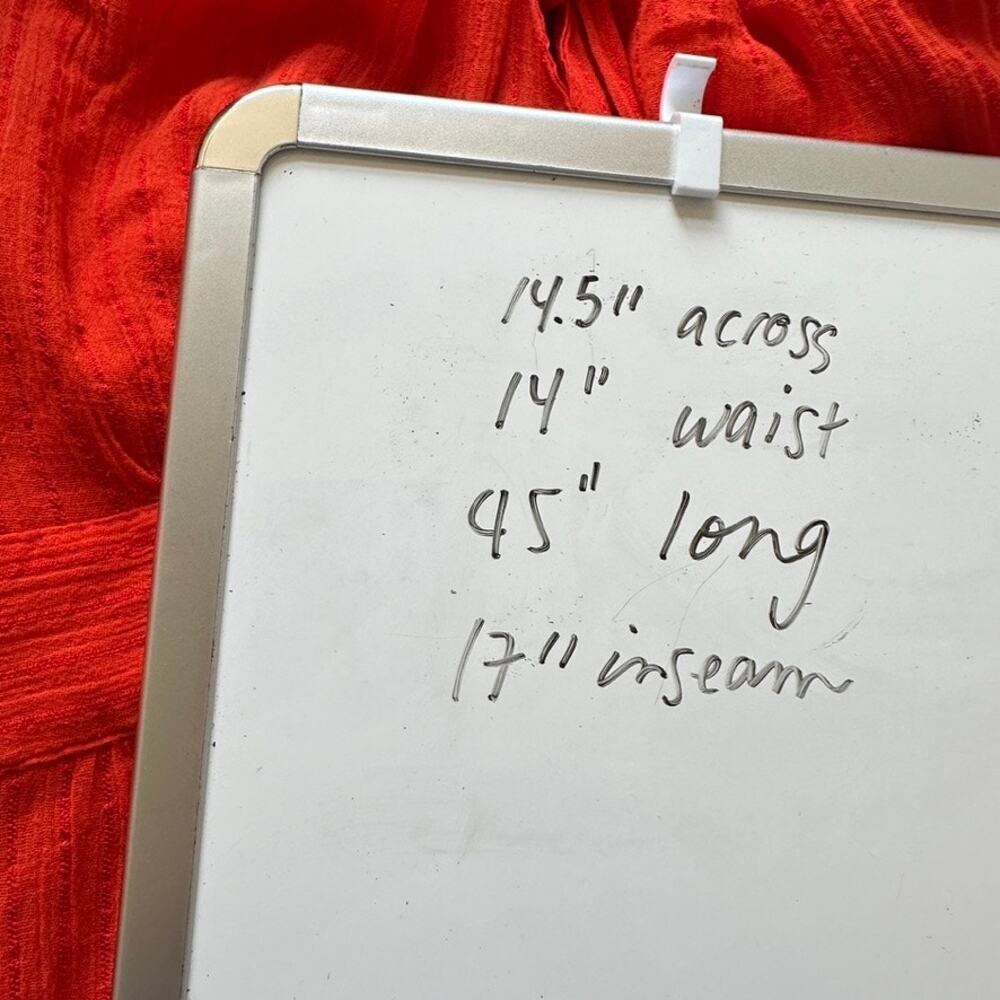 14.5" across
14" waist
45" long
17" inseam